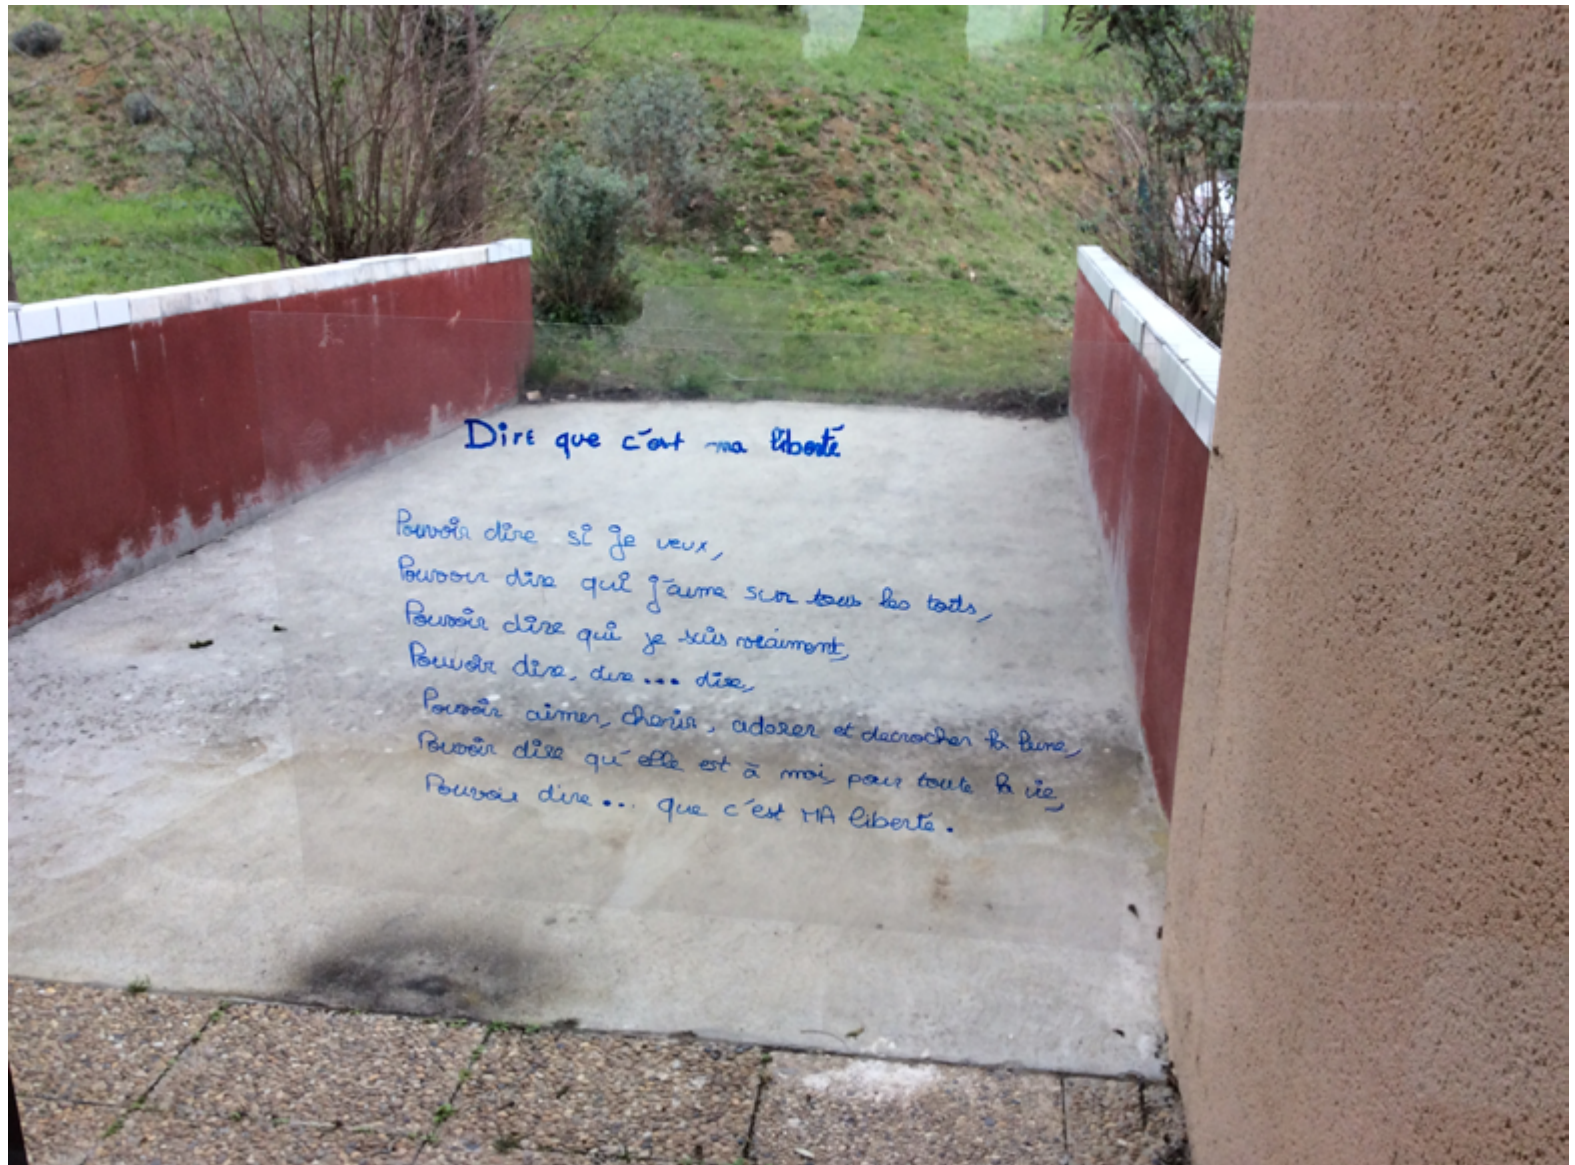 Dire que c'est ma liberté
Pouvoir dire si je veux,
Pouvoir dire qui j'aime sur tous les toits,
Pouvoir dire qui je suis vraiment,
Pouvoir dire, dire... dire,
Pouvoir aimer, cherir, adorer et decrocher la lune,
Pouvoir dire qu'elle est à moi, pour toute la vie,
Pouvoir dire... que c'est MA liberté.